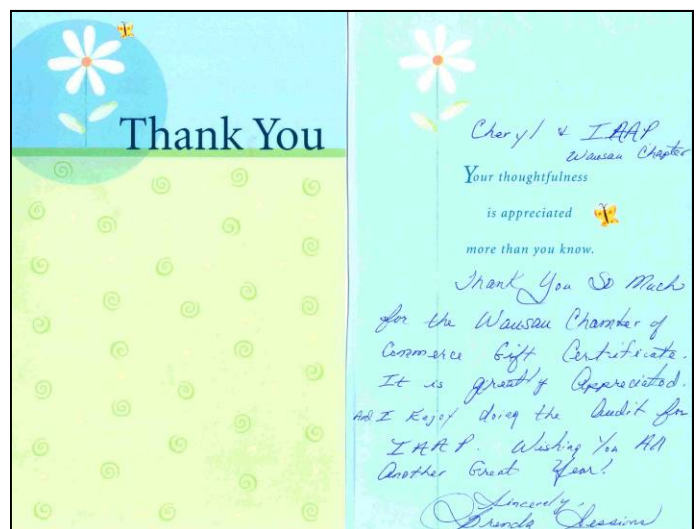 Thank You
Cheryl & IAAP
Wausau Chapter
Your thoughtfulness
is appreciated
more than you know.
Thank You So Much
for the Wausau Chamber of
Commerce Gift Certificate.
It is greatly Appreciated.
And I Enjoy doing the Audit for
IAAP. Wishing You All
Another Great Year!
Sincerely,
Brenda Sessions